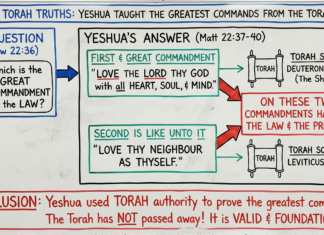 TORAH TRUTHS: YESHUA TAUGHT THE GREATEST COMMANDS FROM THE TORAH
QUESTION
22:36)
which is the
GREAT
COMMANDMENT
the LAW?
YESHUA'S ANSWER (Matt 22:37-40)
FIRST & GREAT COMMANDMENT
"LOVE the LORD THY GOD
with all HEART, SOUL, & MIND."
TORAH
TORAH
DEUTERON
(The Sh
ON THESE
COMMANDMENTS HA
THE LAW & THE PR
SECOND IS LIKE UNTO IT
"LOVE THY NEIGHBOUR
AS THYSELF."
TORAH
TORAH
LEVITICUS
Yeshua used TORAH authority to prove the greatest com
The Torah has NOT passed away! It is VALID & FOUNDA